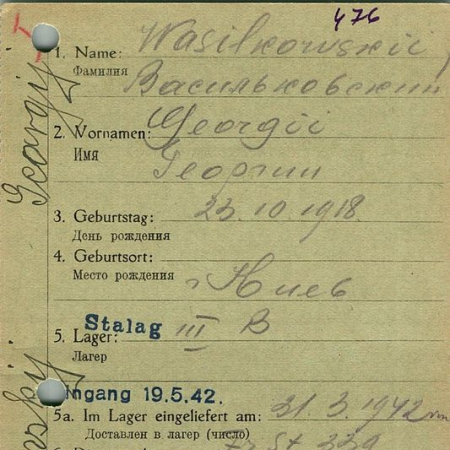 476
1. Name: Wasilkowskii
Фамилия Васильковский
2. Vornamen: Georgii
Имя Георгии
3. Geburtstag: 23.10.1918
День рождения
4. Geburtsort:
Место рождения г Киев
5. Lager: Stalag III B
Лагер
ingang 19.5.42.
5a. Im Lager eingeliefert am: 31.3.1942
Доставлен в лагер (число) 339
Georgij